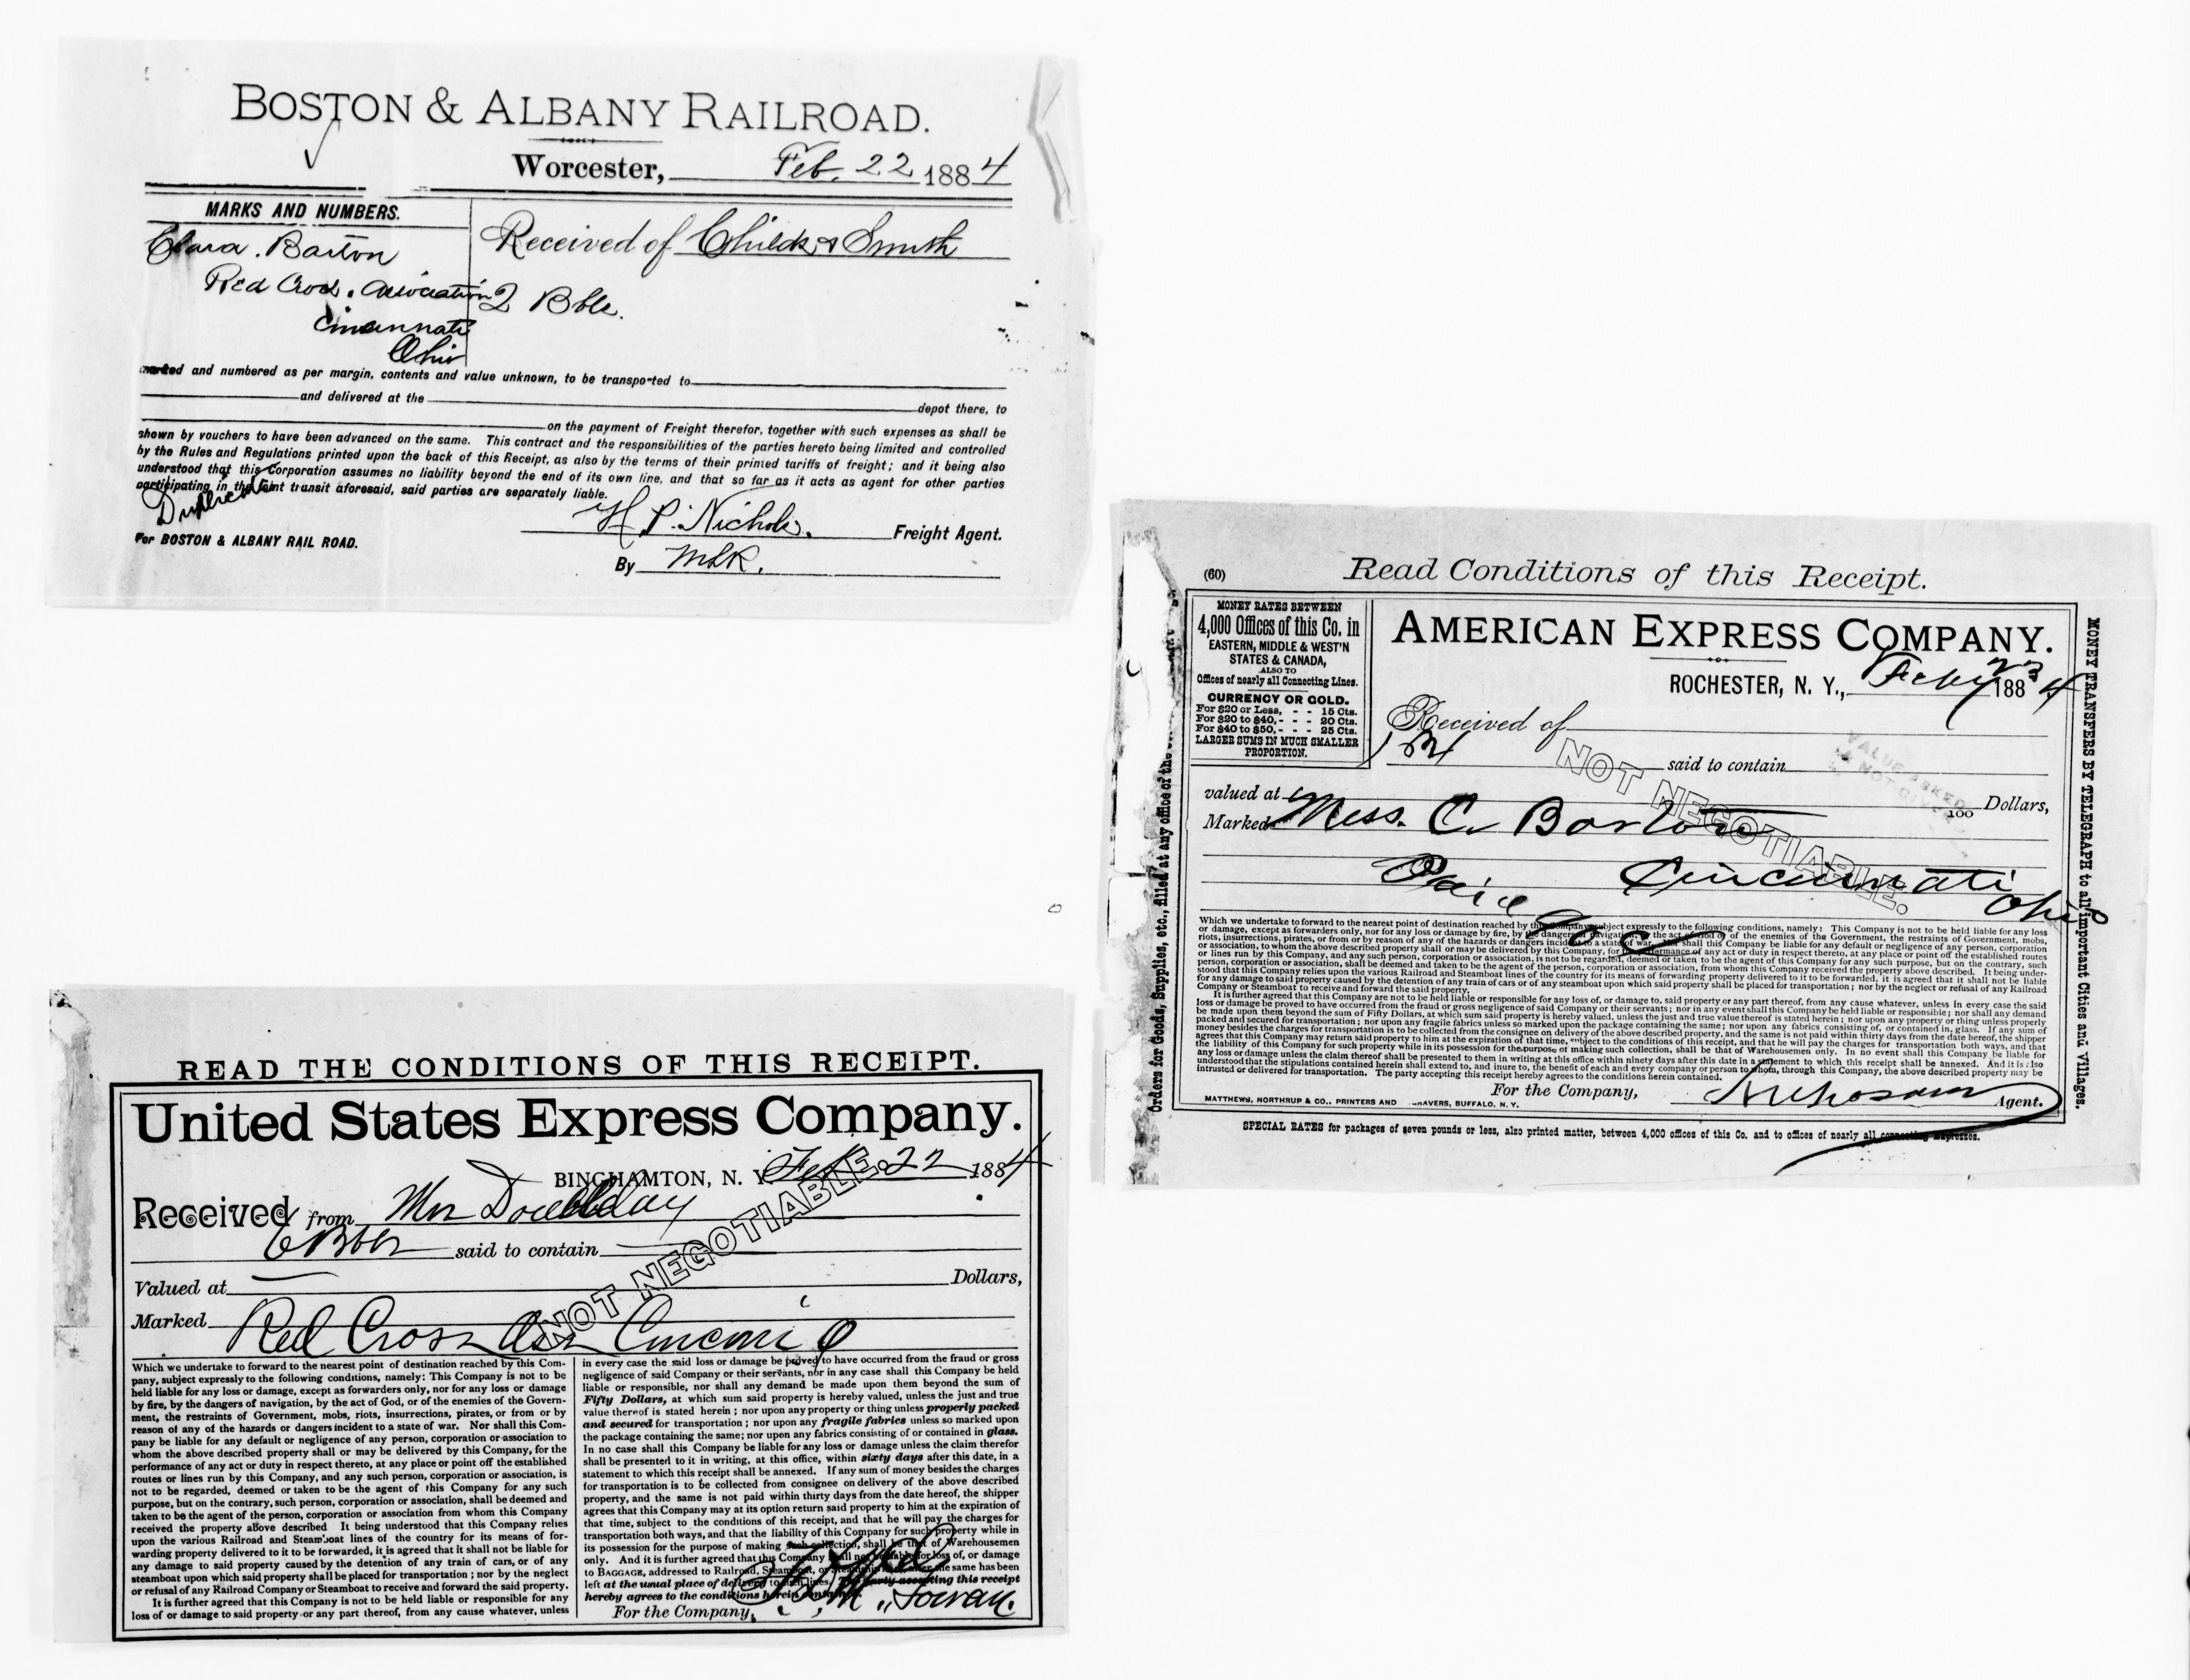 BOSTON & ALBANY RAILROAD.
Worcester, Feb. 22 1884
MARKS AND NUMBERS.
Clara. Barton
Red Cross. Association
Cincinnati
Ohio
Received of Childs & Smith
2 Bbls.
marked and numbered as per margin, contents and value unknown, to be transported to
and delivered at the depot there, to
on the payment of Freight therefor, together with such expenses as shall be
shown by vouchers to have been advanced on the same. This contract and the responsibilities of the parties hereto being limited and controlled
by the Rules and Regulations printed upon the back of this Receipt, as also by the terms of their printed tariffs of freight; and it being also
understood that this Corporation assumes no liability beyond the end of its own line, and that so far as it acts as agent for other parties
participating in the joint transit aforesaid, said parties are separately liable.
Duplicate
H. P. Nichols. Freight Agent.
For BOSTON & ALBANY RAIL ROAD.
By MLR.
(60)
Read Conditions of this Receipt.
MONEY RATES BETWEEN
4,000 Offices of this Co. in
EASTERN, MIDDLE & WEST'N
STATES & CANADA,
ALSO TO
Offices of nearly all Connecting Lines.
CURRENCY OR GOLD.
For $20 or Less, - - 15 Cts.
For $20 to $40, - - - 20 Cts.
For $40 to $50, - - - 25 Cts.
LARGER SUMS IN MUCH SMALLER
PROPORTION.
AMERICAN EXPRESS COMPANY.
ROCHESTER, N. Y., Feby 23 1884
Received of
said to contain
VALUE ASKED
& NOT GIVEN
valued at 100 Dollars,
Marked Miss. C. Barton
Cincinnati
Ohio
Paid
NOT NEGOTIABLE.
Which we undertake to forward to the nearest point of destination reached by this Company, subject expressly to the following conditions, namely: This Company is not to be held liable for any loss
or damage, except as forwarders only, nor for any loss or damage by fire, by the dangers of navigation, by the act of God or of the enemies of the Government, the restraints of Government, mobs,
riots, insurrections, pirates, or from or by reason of any of the hazards or dangers incident to a state of war. Nor shall this Company be liable for any default or negligence of any person, corporation
or association, to whom the above described property shall or may be delivered by this Company, for the performance of any act or duty in respect thereto, at any place or point off the established routes
or lines run by this Company, and any such person, corporation or association, is not to be regarded, deemed or taken to be the agent of this Company for any such purpose, but on the contrary, such
person, corporation or association, shall be deemed and taken to be the agent of the person, corporation or association, from whom this Company received the property above described. It being under-
stood that this Company relies upon the various Railroad and Steamboat lines of the country for its means of forwarding property delivered to it to be forwarded, it is agreed that it shall not be liable
for any damage to said property caused by the detention of any train of cars or of any steamboat upon which said property shall be placed for transportation; nor by the neglect or refusal of any Railroad
Company or Steamboat to receive and forward the said property.
It is further agreed that this Company are not to be held liable or responsible for any loss of, or damage to, said property or any part thereof, from any cause whatever, unless in every case the said
loss or damage be proved to have occurred from the fraud or gross negligence of said Company or their servants; nor in any event shall this Company be held liable or responsible; nor shall any demand
be made upon them beyond the sum of Fifty Dollars, at which sum said property is hereby valued, unless the just and true value thereof is stated herein; nor upon any property or thing unless properly
packed and secured for transportation; nor upon any fragile fabrics unless so marked upon the package containing the same; nor upon any fabrics consisting of, or contained in, glass. If any sum of
money besides the charges for transportation is to be collected from the consignee on delivery of the above described property, and the same is not paid within thirty days from the date hereof, the shipper
agrees that this Company may return said property to him at the expiration of that time, subject to the conditions of this receipt, and that he will pay the charges for transportation both ways, and that
the liability of this Company for such property while in its possession for the purpose of making such collection, shall be that of Warehousemen only. In no event shall this Company be liable for
any loss or damage unless the claim thereof shall be presented to them in writing at this office within ninety days after this date in a statement to which this receipt shall be annexed. And it is also
understood that the stipulations contained herein shall extend to, and inure to, the benefit of each and every company or person to whom, through this Company, the above described property may be
intrusted or delivered for transportation. The party accepting this receipt hereby agrees to the conditions herein contained.
For the Company, Agent.
MATTHEWS, NORTHRUP & CO., PRINTERS AND BUFFALO, N. Y.
SPECIAL RATES for packages of seven pounds or less, also printed matter, between 4,000 offices of this Co. and to offices of nearly all connecting Expresses.
Orders for Goods, Supplies, etc., filled at any office of the
MONEY TRANSFERS BY TELEGRAPH to all important Cities and Villages.
READ THE CONDITIONS OF THIS RECEIPT.
United States Express Company.
BINGHAMTON, N. Y. Feb. 22 1884
Received from Mrs Doubleday
6 Bbls said to contain
Valued at Dollars,
Marked Red Cross Assn Cincinni O
NOT NEGOTIABLE.
Which we undertake to forward to the nearest point of destination reached by this Com-
pany, subject expressly to the following conditions, namely: This Company is not to be
held liable for any loss or damage, except as forwarders only, nor for any loss or damage
by fire, by the dangers of navigation, by the act of God, or of the enemies of the Govern-
ment, the restraints of Government, mobs, riots, insurrections, pirates, or from or by
reason of any of the hazards or dangers incident to a state of war. Nor shall this Com-
pany be liable for any default or negligence of any person, corporation or association to
whom the above described property shall or may be delivered by this Company, for the
performance of any act or duty in respect thereto, at any place or point off the established
routes or lines run by this Company, and any such person, corporation or association, is
not to be regarded, deemed or taken to be the agent of this Company for any such
purpose, but on the contrary, such person, corporation or association, shall be deemed and
taken to be the agent of the person, corporation or association from whom this Company
received the property above described It being understood that this Company relies
upon the various Railroad and Steamboat lines of the country for its means of for-
warding property delivered to it to be forwarded, it is agreed that it shall not be liable for
any damage to said property caused by the detention of any train of cars, or of any
steamboat upon which said property shall be placed for transportation; nor by the neglect
or refusal of any Railroad Company or Steamboat to receive and forward the said property.
It is further agreed that this Company is not to be held liable or responsible for any
loss of or damage to said property or any part thereof, from any cause whatever, unless
in every case the said loss or damage be proved to have occurred from the fraud or gross
negligence of said Company or their servants, nor in any case shall this Company be held
liable or responsible, nor shall any demand be made upon them beyond the sum of
Fifty Dollars, at which sum said property is hereby valued, unless the just and true
value thereof is stated herein; nor upon any property or thing unless properly packed
and secured for transportation; nor upon any fragile fabrics unless so marked upon
the package containing the same; nor upon any fabrics consisting of or contained in glass.
In no case shall this Company be liable for any loss or damage unless the claim therefor
shall be presented to it in writing, at this office, within sixty days after this date, in a
statement to which this receipt shall be annexed. If any sum of money besides the charges
for transportation is to be collected from consignee on delivery of the above described
property, and the same is not paid within thirty days from the date hereof, the shipper
agrees that this Company may at its option return said property to him at the expiration of
that time, subject to the conditions of this receipt, and that he will pay the charges for
transportation both ways, and that the liability of this Company for such property while in
its possession for the purpose of making such collection, shall be that of Warehousemen
only. And it is further agreed that this Company shall not be liable for loss of, or damage
to BAGGAGE, addressed to Railroad, Steamboat, or Steamship lines, after the same has been
left at the usual place of delivery to such lines. The party accepting this receipt
hereby agrees to the conditions herein contained.
For the Company,